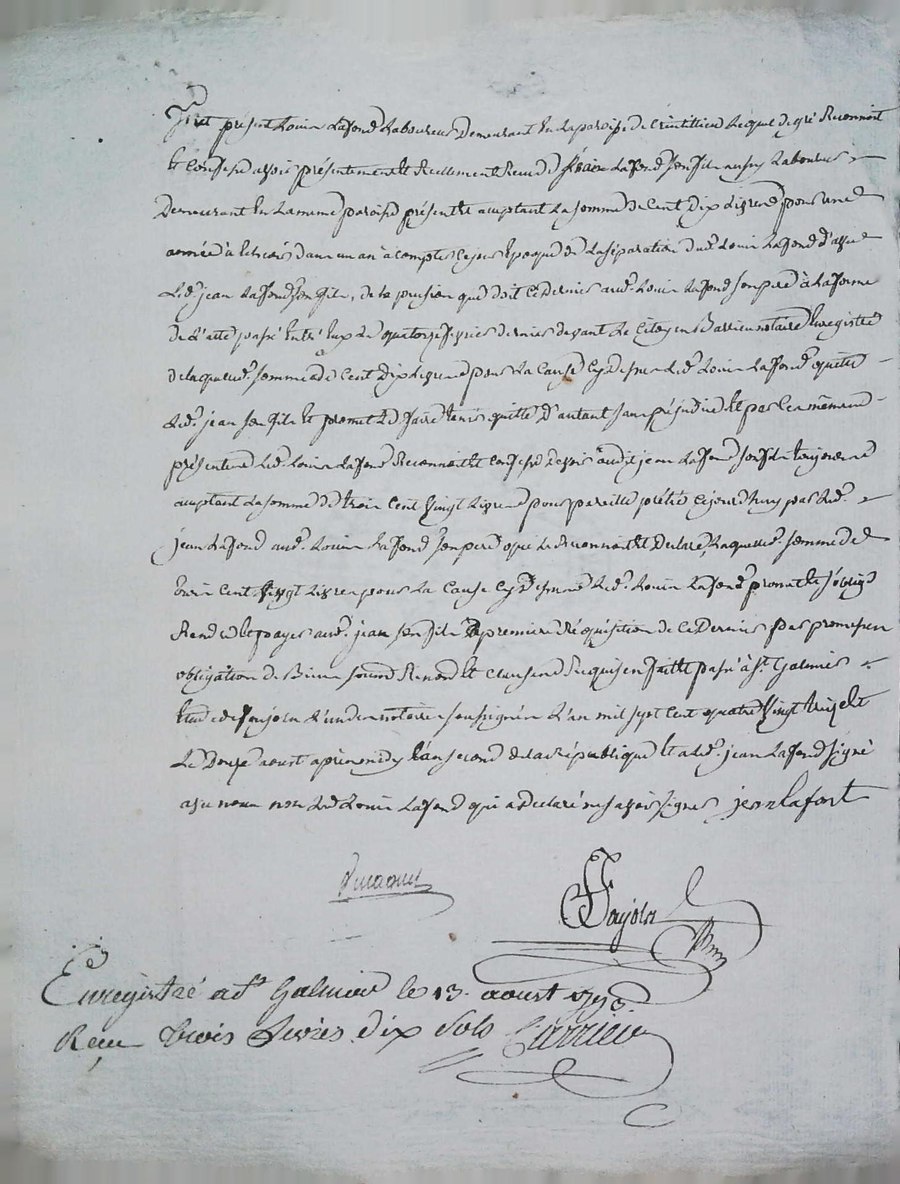 fut présent Louis Lafond Laboureur Demeurant En La paroisse de Lequel de gré Reconnoit
Et Confesse avoir présentement Et Reellement Receu de jean Lafond son fils aussy Laboureur
Demeurant En La meme paroisse présent Et aceptant La somme de Cent Dix Livres pour une
année à Echeoir dans un an à compter Ce jour Epoque de La séparation dud. Louis Lafond d'avec
Led. jean Lafond son fils, de la pension que doit Ce Dernier aud. Louis Lafond son pere à La forme
De L'acte passé Entr'Eux Le quatorze fevrier dernier devant Le Citoyen Barrieu notaire Enregistré
de laquelle. somme de Cent Dix Livres pour La Cause Cy Dessus Led. Louis Lafond quitte
Led. jean son fils Et promet Le faire tenir quitte D'autant sans préjudice Et par Ces mêmes
présentes Led. Louis Lafond Reconnoit Et Confesse Devoir audit jean Lafond son fils toujours
aceptant La somme de trois Cent Vingt Livres pour pareille pretée Cejourd'huy par Led.
jean Lafond aud. Louis Lafond son pere qui Le Reconnoit Et Declare, Laquelle. somme de
trois Cent Vingt Livres pour La Cause Cy Dessus Led. Louis Lafond promet Et s'oblige
Rendre Et payer aud. jean son fils à premiere Réquisition de Ce Dernier par promesses
obligation de Biens soumis Renon Et Clauses Requises fait Et passé à St. Galmier
Etude de Soujols L'un des notaires soussignés L'an mil sept cent quatre Vingt treize
Le Douze aoust après midy L'an second de la république Et a Led. jean Lafond signé
avec nous non Led. Louis Lafond qui a Declaré ne savoir signer jean lafont
Enregistré a St. Galmier le 13. aoust 1793
Reçu trois Livres dix sols Barrieu